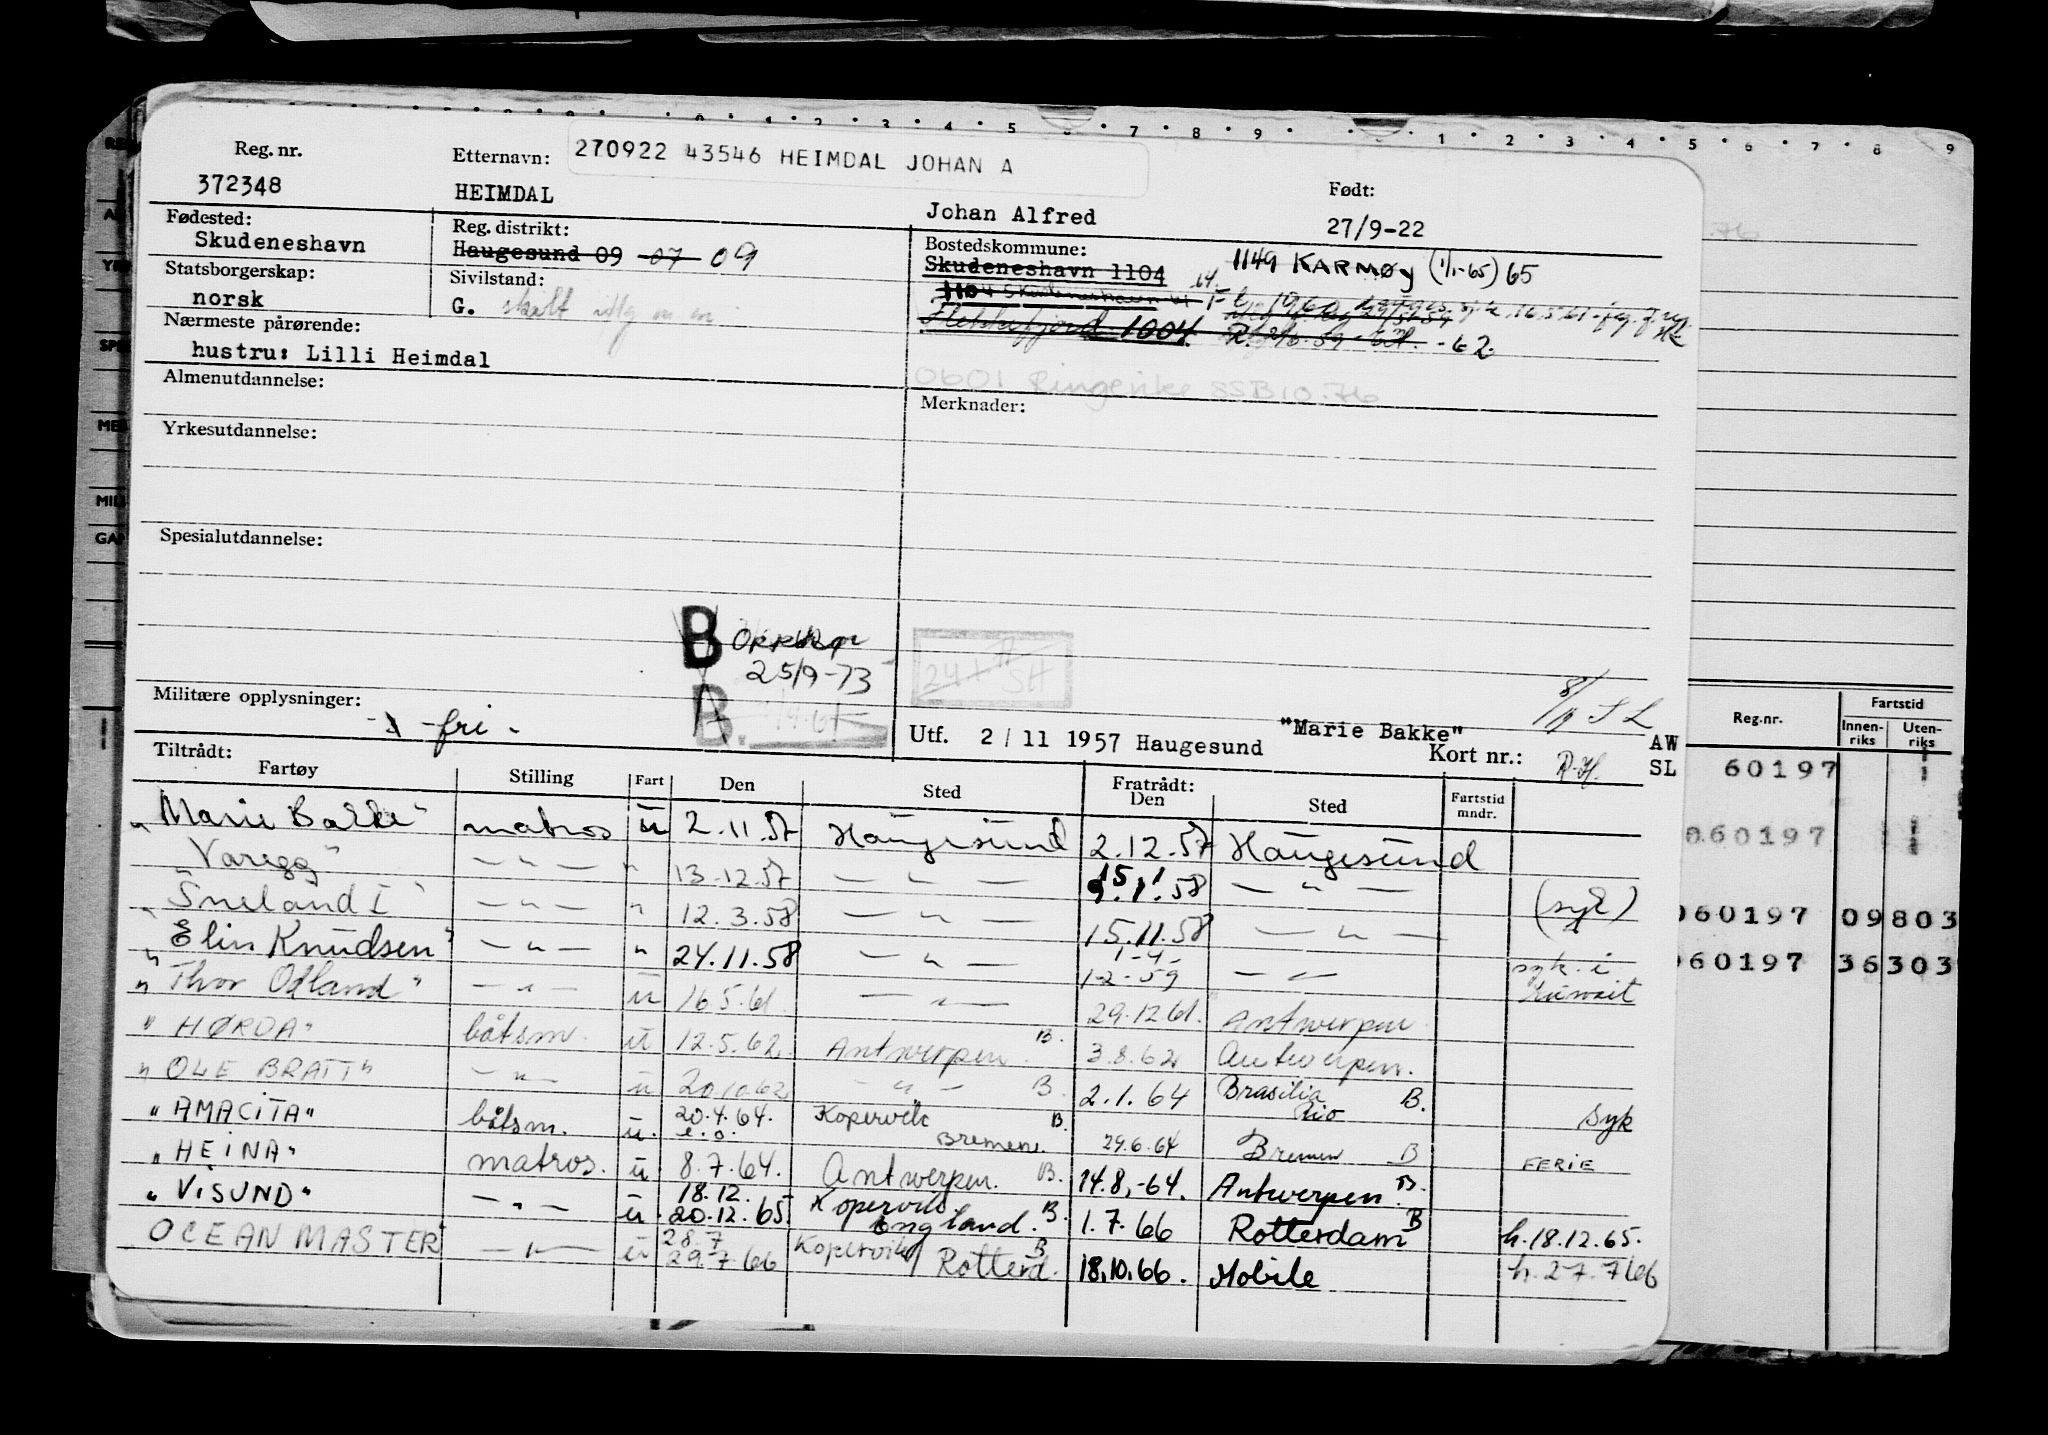 Reg. nr. 372348
Etternavn: 270922 43546 HEIMDAL JOHAN A
HEIMDAL Johan Alfred
Født: 27/9-22
Fødested: Skudeneshavn
Reg. distrikt: Haugesund 09 07 09
Bostedskommune: Skudeneshavn 1104
1149 KARMØY (1/1-65) 65
Statsborgerskap: norsk
Sivilstand: G.
Flekkefjord 1004
-62.
Nærmeste pårørende:
hustru: Lilli Heimdal
0601 Ringerike SSB 10.76
Almenutdannelse:
Merknader:
Yrkesutdannelse:
Spesialutdannelse:
B
25/9-73
Militære opplysninger: -fri-
Utf. 2/11 1957 Haugesund "Marie Bakke"
Kort nr.:
AW
SL
Tiltrådt: Fartøy Stilling Fart Den Sted Fratrådt: Den Sted Fartstid mndr.
"Marie Bakke" matros u 2.11.57 Haugesund 2.12.57 Haugesund
"Varegg" — " — " 13.12.57 — " — 15.1.58 — " — (syk)
"Sneland I" — " — " 12.3.58 — " — 15.11.58 — " —
"Elin Knudsen" — " — " 24.11.58 — " — 1-2-59 — " — syk. i Kuwait
"Thor Odland" — " — u 16.5.61 — " — 29.12.61. Antwerpen
"HØRDA" båtsm. u 12.5.62. Antwerpen B. 3.8.62 Antwerpen.
"OLE BRATT" — " — u 20.10.62 — " — B. 2.1.64 Brasilia Rio B. syk
"AMACITA" båtsm. u. 20.4.64. Kopervik Bremen. B. 29.6.64 Bremen B FERIE
"HEINA" matros. u 8.7.64. Antwerpen. B. 14.8.-64. Antwerpen B.
"VISUND" — " — u. 18.12. 20.12.65. Kopervik England. B. 1.7.66 Rotterdam B h.18.12.65.
OCEAN MASTER" — " — u 28.7 29.7.66 Kopervik/ Rotterd. B 18.10.66. Mobile h.27.7.66
Reg.nr. Fartstid
Innenriks Utenriks
60197
060197
060197 09803
060197 36303